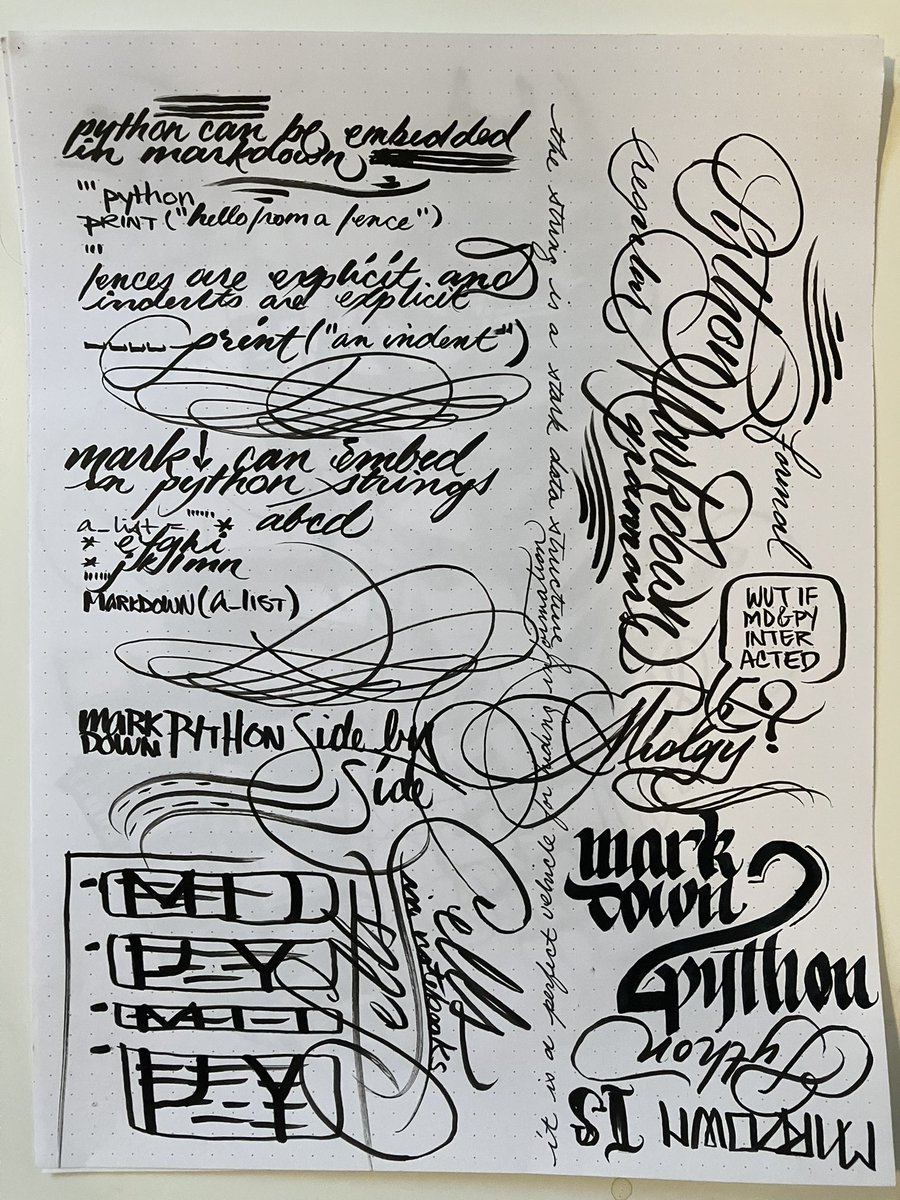 python can be embedded
in markdown
''' python
PRINT ("hello from a fence")
'''
fences are explicit and
indents are explicit
print ("an indent")
mark↓ can embed
in python strings
a_list = """ * abcd
* efghi
* jklmn
"""
MARKDOWN (A_LIST)
MARK
DOWN PYTHON Side by
Side
MD
PY
MD
PY
Cells
in notebooks
the string is a stark data structure
it is a perfect vehicle
Python
Markdown
formal
grammars
WUT IF
MD&PY
INTER
ACTED
?
mark
down
2
python
MARKDOWN IS
Python